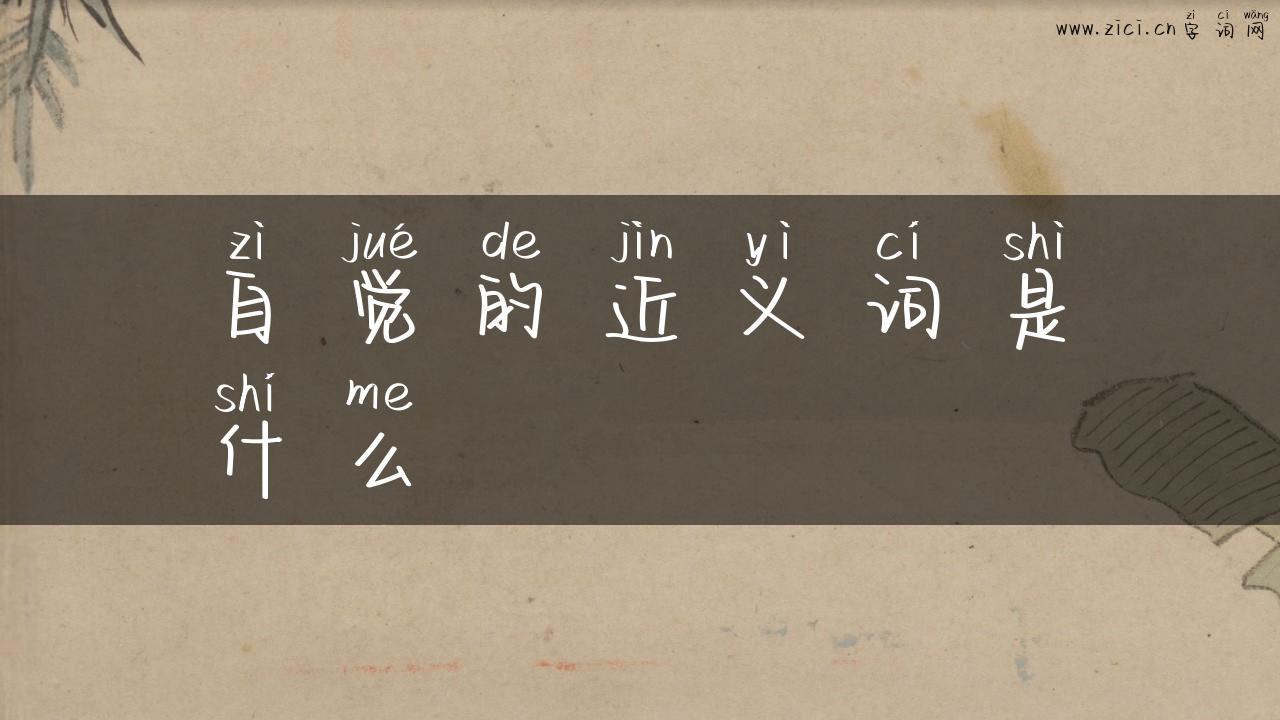 zì cí wǎng
www.zici.cn 字 词 网
zì jué de jìn yì cí shì
自 觉 的 近 义 词 是
shí me
什 么